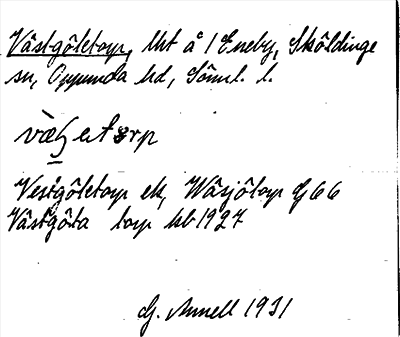 Västgöletorp, lht å 1 Eneby, Sköldinge
sn, Oppunda hd, Söml. l.
Vestgöletorp ek, Wäsjötorp G 66
Västgöta torp hb 1927
G. Annell 1931